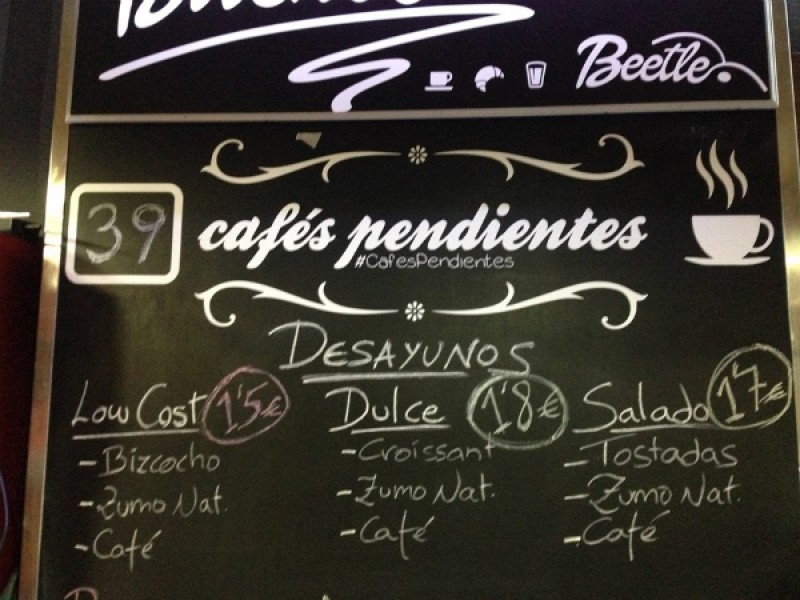 Beetle
39 cafés pendientes
#CafesPendientes
DESAYUNOS
Low Cost 1'5€
- Bizcocho
- Zumo Nat.
- Café
Dulce 1'8€
- Croissant
- Zumo Nat.
- Café
Salado 1'7€
- Tostadas
- Zumo Nat.
- Café